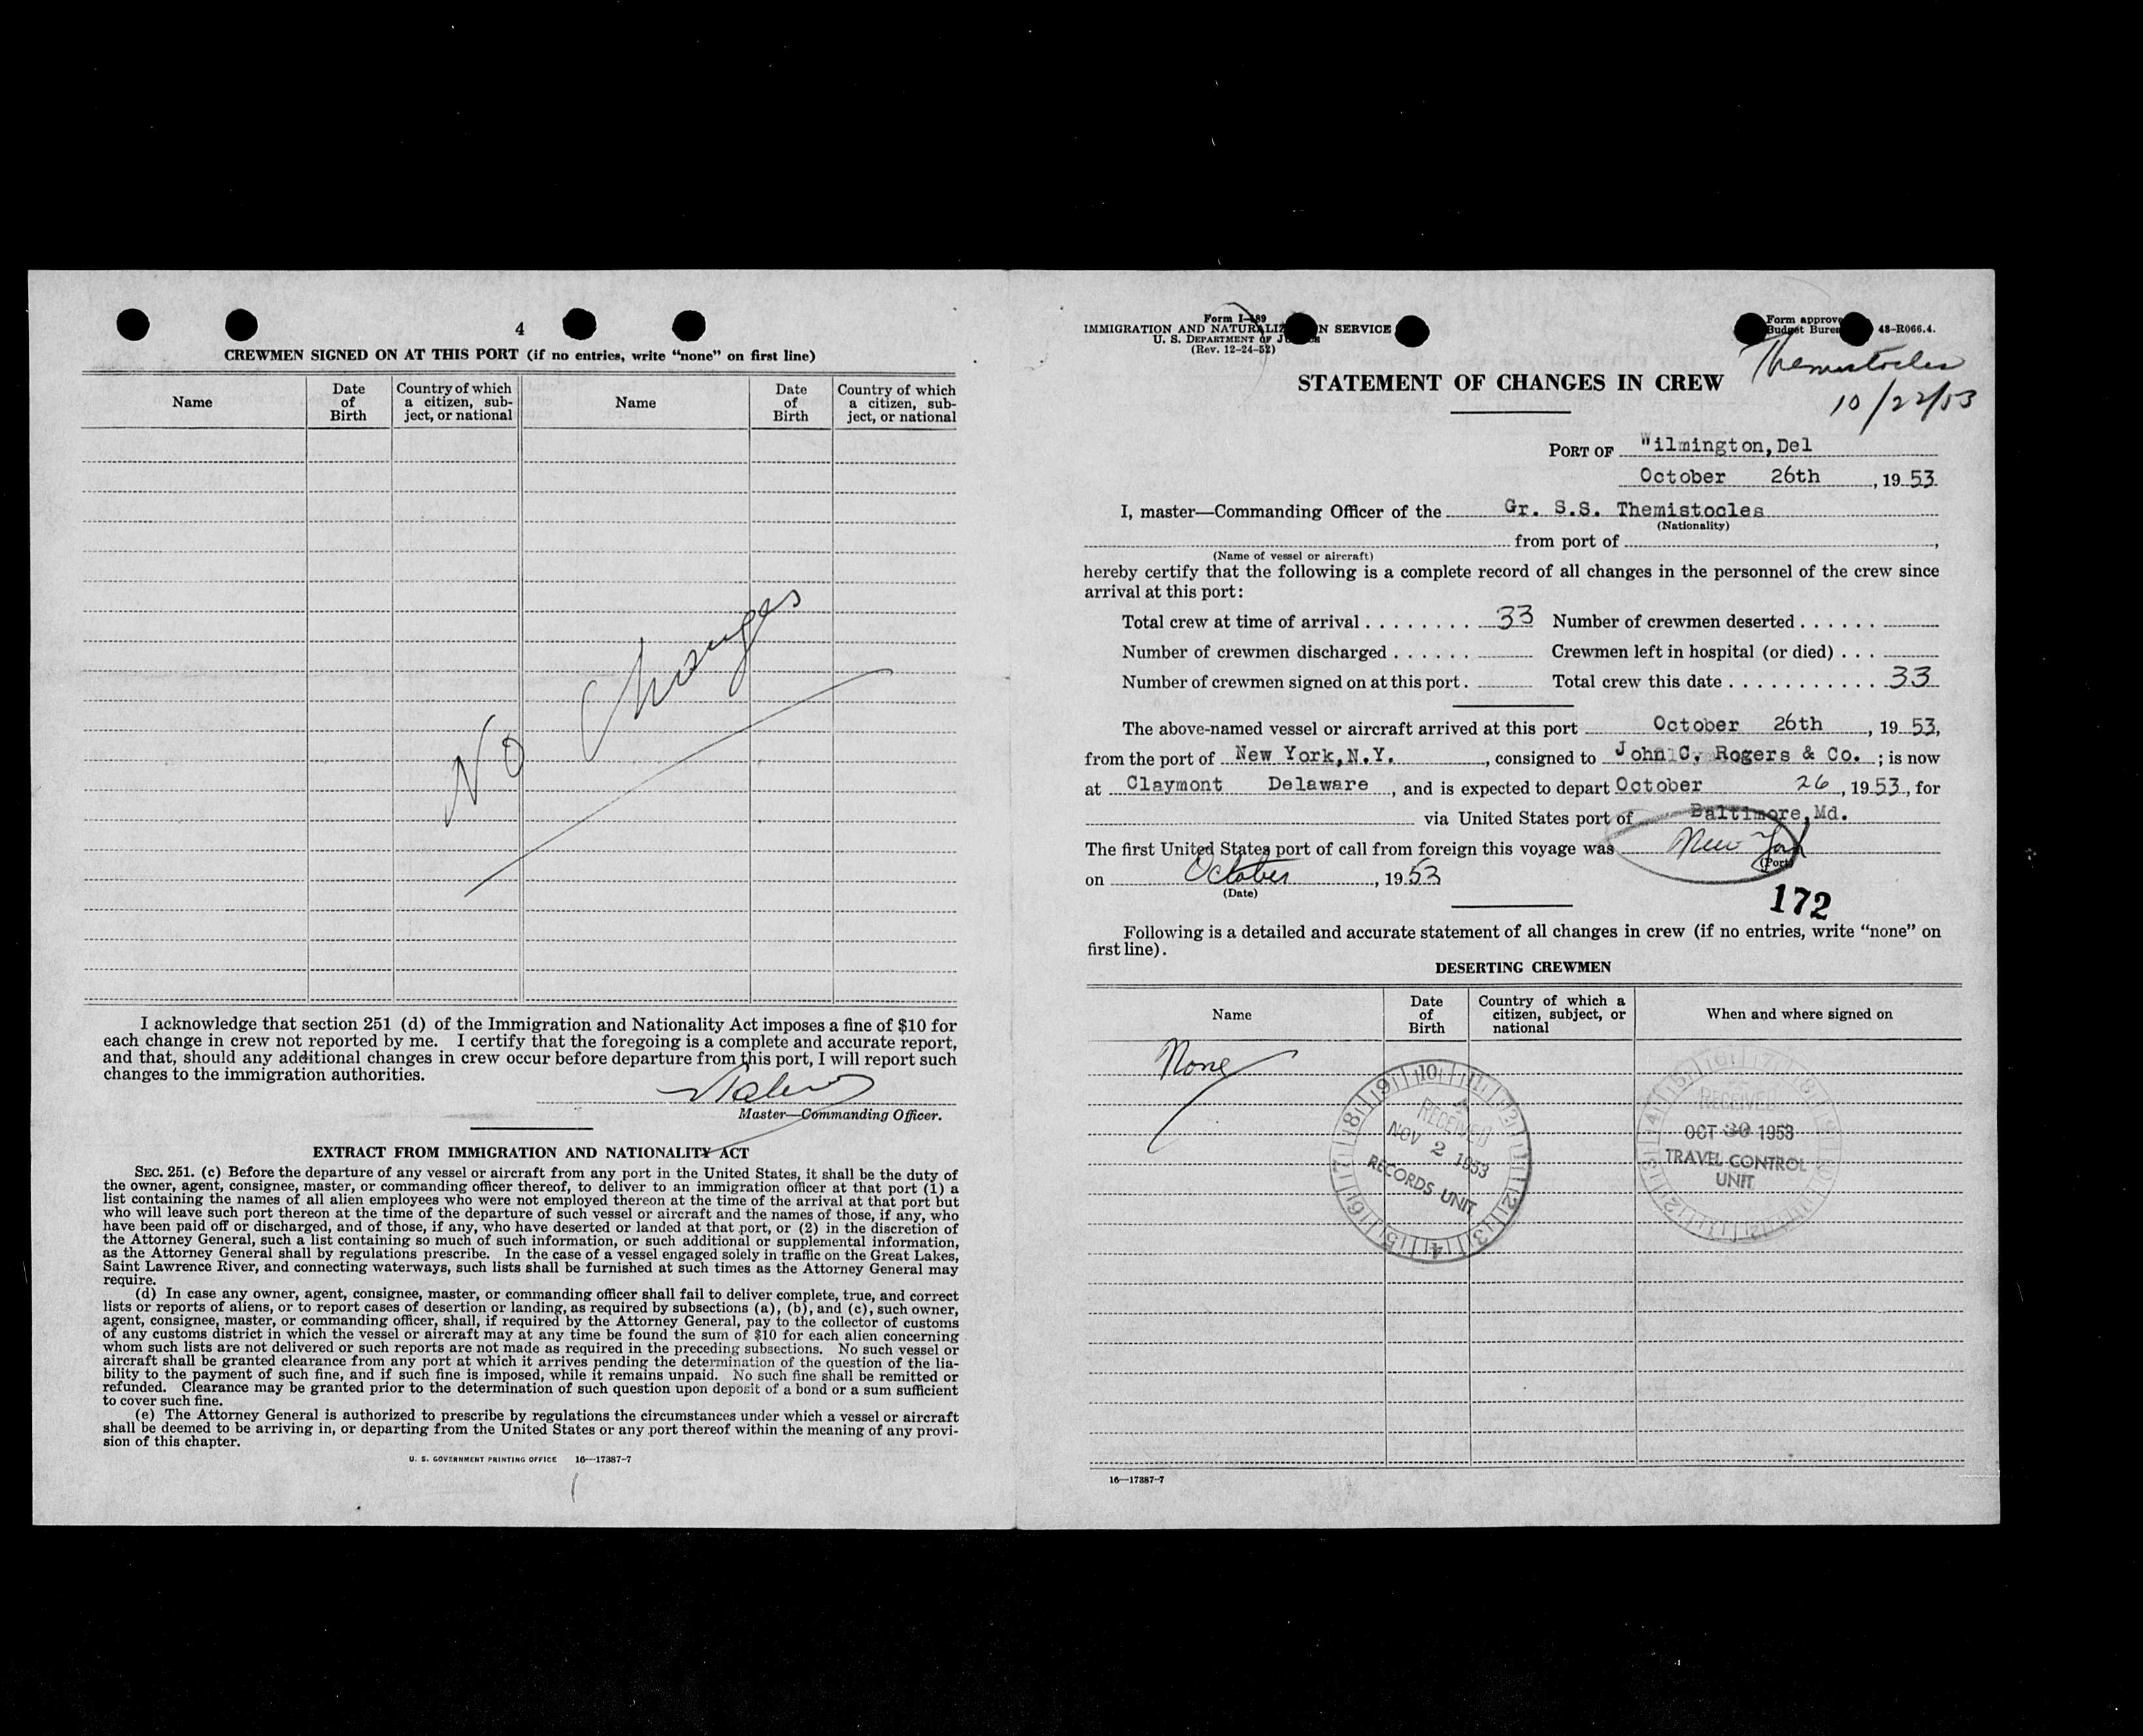 4
CREWMEN SIGNED ON AT THIS PORT (if no entries, write “none” on first line)
Name Date of Birth Country of which a citizen, sub-ject, or national Name Date of Birth Country of which a citizen, sub-ject, or national
No Changes
I acknowledge that section 251 (d) of the Immigration and Nationality Act imposes a fine of $10 for
each change in crew not reported by me. I certify that the foregoing is a complete and accurate report,
and that, should any additional changes in crew occur before departure from this port, I will report such
changes to the immigration authorities.
Master—Commanding Officer.
EXTRACT FROM IMMIGRATION AND NATIONALITY ACT
SEC. 251. (c) Before the departure of any vessel or aircraft from any port in the United States, it shall be the duty of
the owner, agent, consignee, master, or commanding officer thereof, to deliver to an immigration officer at that port (1) a
list containing the names of all alien employees who were not employed thereon at the time of the arrival at that port but
who will leave such port thereon at the time of the departure of such vessel or aircraft and the names of those, if any, who
have been paid off or discharged, and of those, if any, who have deserted or landed at that port, or (2) in the discretion of
the Attorney General, such a list containing so much of such information, or such additional or supplemental information,
as the Attorney General shall by regulations prescribe. In the case of a vessel engaged solely in traffic on the Great Lakes,
Saint Lawrence River, and connecting waterways, such lists shall be furnished at such times as the Attorney General may
require.
(d) In case any owner, agent, consignee, master, or commanding officer shall fail to deliver complete, true, and correct
lists or reports of aliens, or to report cases of desertion or landing, as required by subsections (a), (b), and (c), such owner,
agent, consignee, master, or commanding officer, shall, if required by the Attorney General, pay to the collector of customs
of any customs district in which the vessel or aircraft may at any time be found the sum of $10 for each alien concerning
whom such lists are not delivered or such reports are not made as required in the preceding subsections. No such vessel or
aircraft shall be granted clearance from any port at which it arrives pending the determination of the question of the lia-
bility to the payment of such fine, and if such fine is imposed, while it remains unpaid. No such fine shall be remitted or
refunded. Clearance may be granted prior to the determination of such question upon deposit of a bond or a sum sufficient
to cover such fine.
(e) The Attorney General is authorized to prescribe by regulations the circumstances under which a vessel or aircraft
shall be deemed to be arriving in, or departing from the United States or any port thereof within the meaning of any provi-
sion of this chapter.
U. S. GOVERNMENT PRINTING OFFICE 16—17387-7
Form I-489
IMMIGRATION AND NATURALIZ N SERVICE
U. S. DEPARTMENT OF J
(Rev. 12-24-52)
Form approve
Budget Bure 43-R066.4.
Themistocles
10/22/53
STATEMENT OF CHANGES IN CREW
PORT OF Wilmington,Del
October 26th , 19 53
I, master—Commanding Officer of the Gr. S.S. Themistocles
(Nationality)
from port of ,
(Name of vessel or aircraft)
hereby certify that the following is a complete record of all changes in the personnel of the crew since
arrival at this port:
Total crew at time of arrival . . . . . . . . 33 Number of crewmen deserted . . . . . .
Number of crewmen discharged . . . . . . Crewmen left in hospital (or died) . . .
Number of crewmen signed on at this port . Total crew this date . . . . . . . . . . . . 33
The above-named vessel or aircraft arrived at this port October 26th , 19 53,
from the port of New York,N.Y. , consigned to John C. Rogers & Co. ; is now
at Claymont Delaware , and is expected to depart October 26 , 19 53 , for
via United States port of Baltimore,Md.
The first United States port of call from foreign this voyage was New York
(Port)
on October , 19 53
(Date)
172
Following is a detailed and accurate statement of all changes in crew (if no entries, write “none” on
first line).
DESERTING CREWMEN
Name Date of Birth Country of which a citizen, subject, or national When and where signed on
None
RECEIVED
NOV 2 1953
RECORDS UNIT
RECEIVED
OCT 30 1953
TRAVEL CONTROL
UNIT
16—17387-7